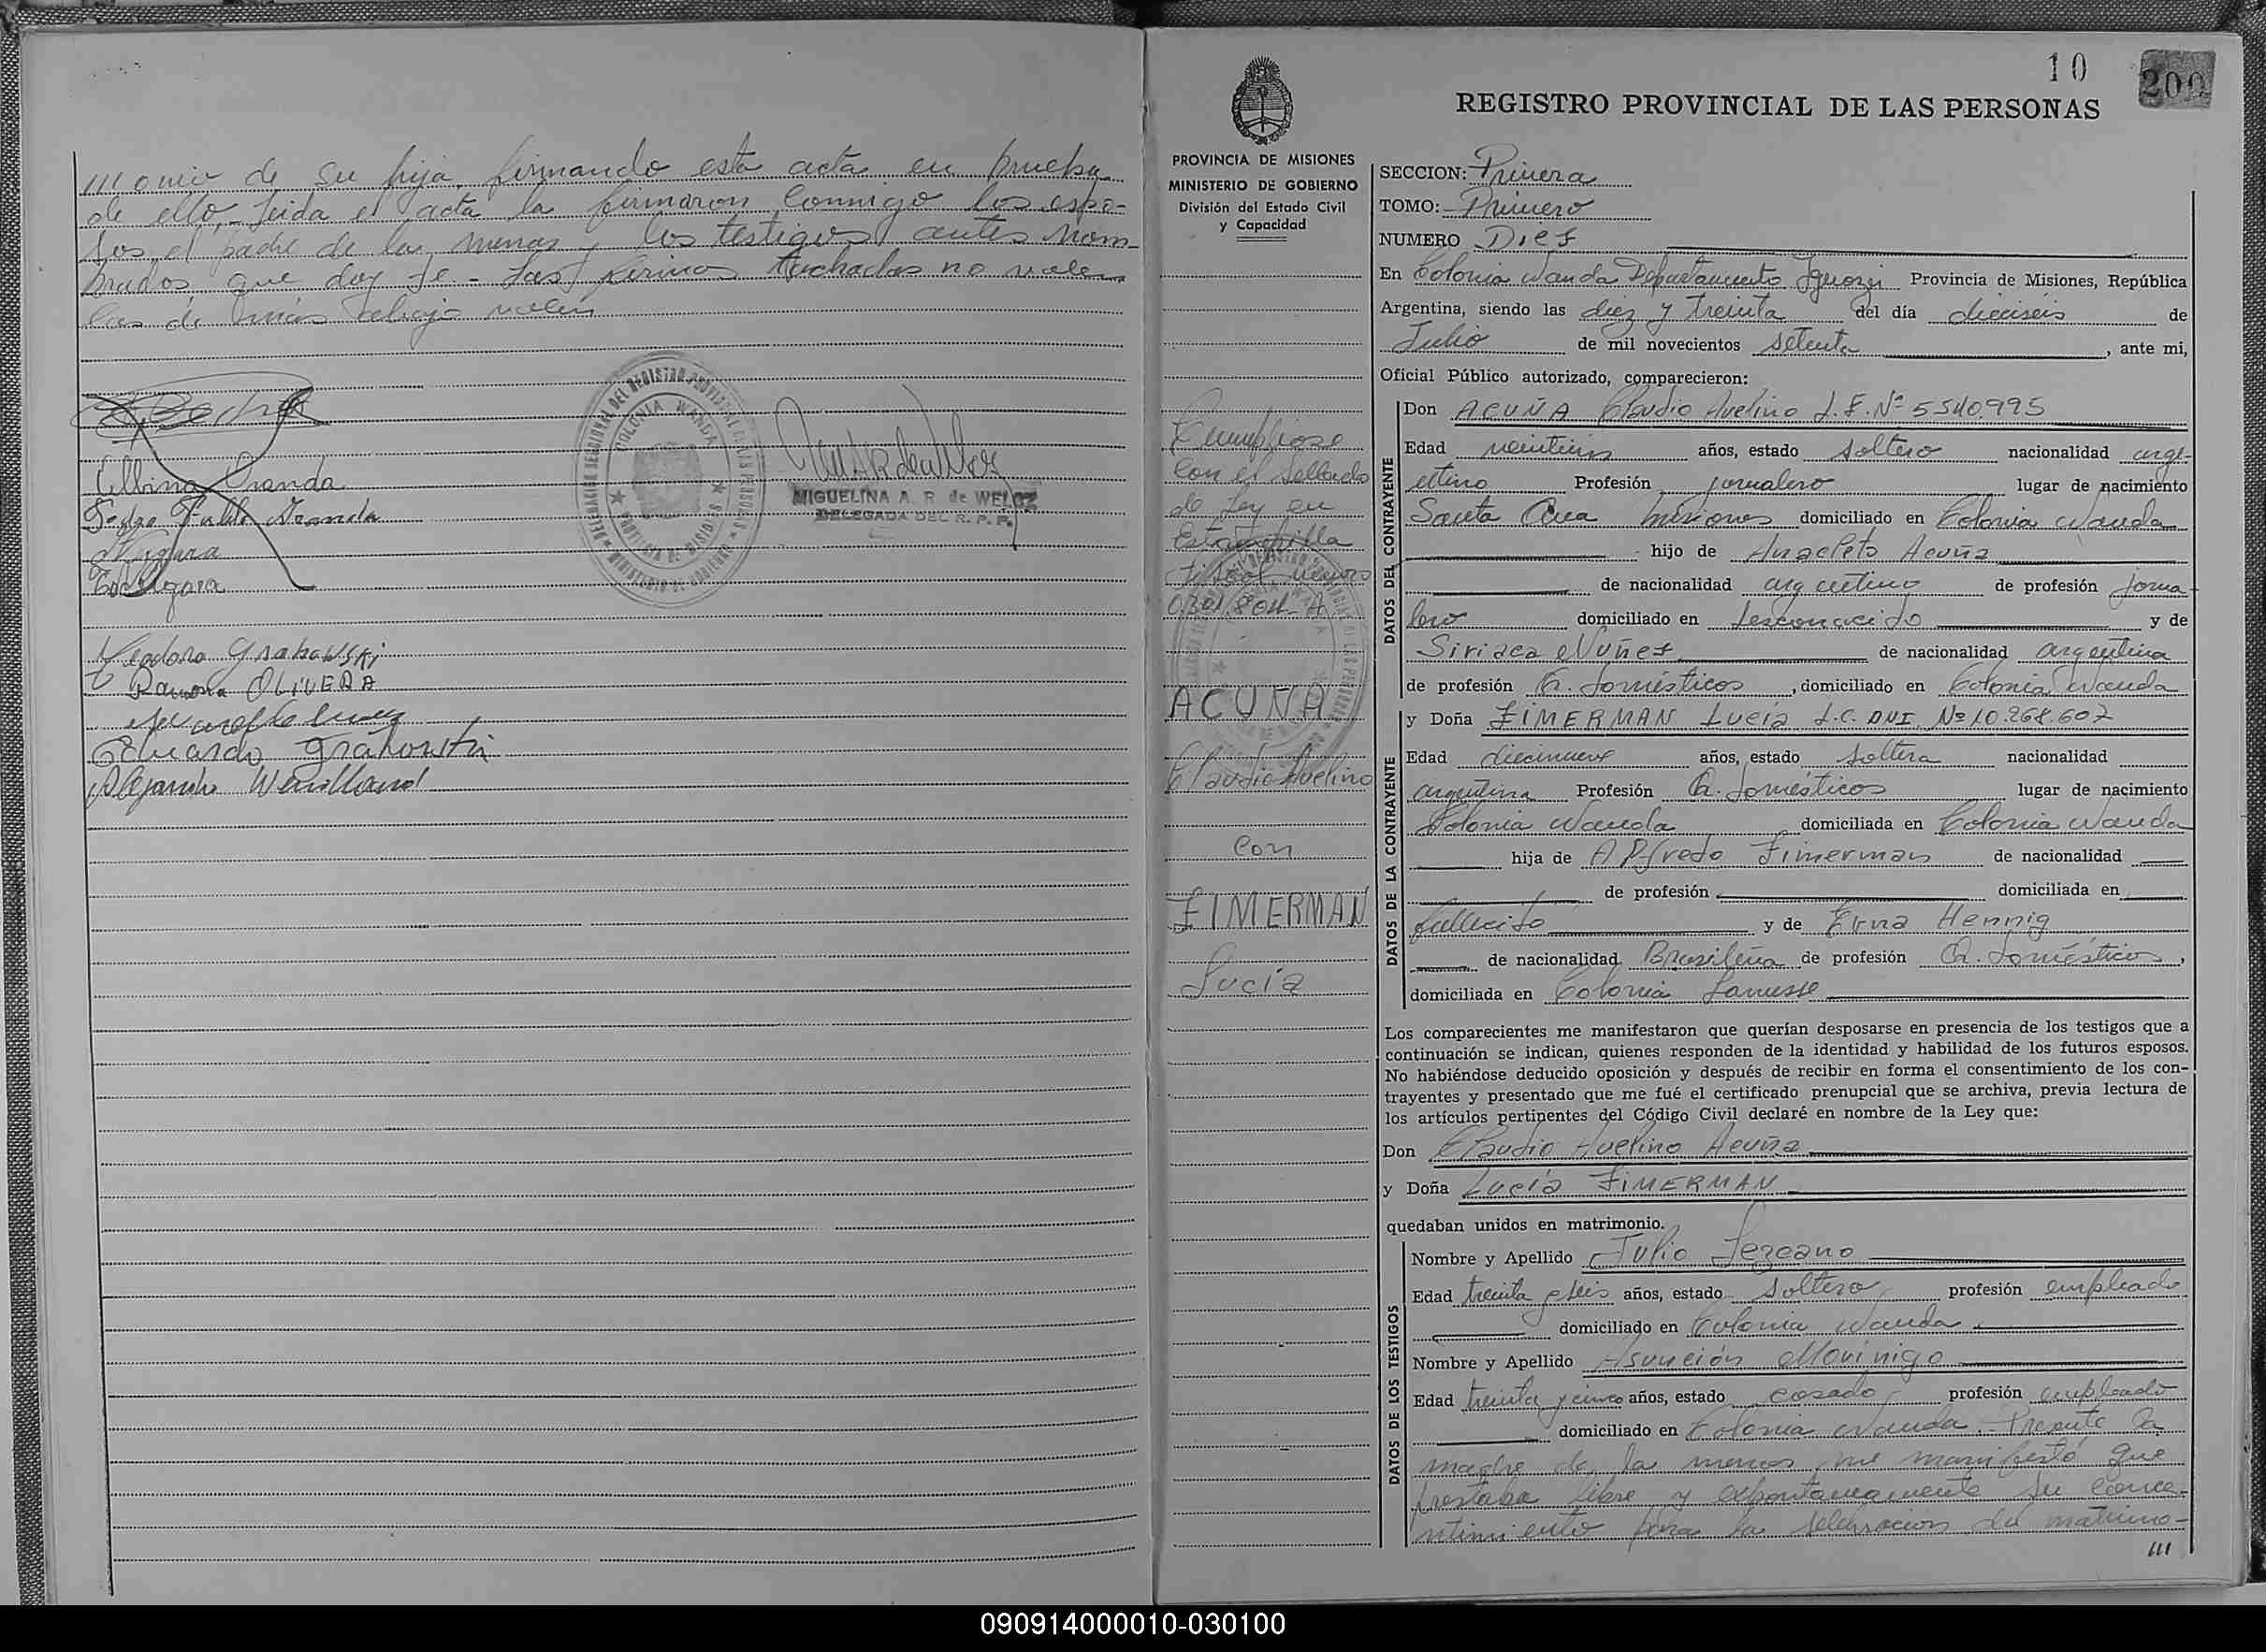 monio de su hija, firmando esta acta en prueba
de ello,- Leida el acta la firmaron conmigo los espo-
sos, el padre de la menor y los testigos antes nom-
brados que doy fe - Las firmas tachadas no valen
las de más abajo valen
Albina Aranda
Pedro Pablo Aranda
Teodoro Grabowski
Ramona OLIVERA
Eduardo Grabowski
DELEGACION SECCIONAL DEL REGISTRO PROVINCIAL DE LAS PERSONAS
COLONIA WANDA
MISIONES
MIGUELINA A. R. de WELOZ
DELEGADA DEL R. P. P.
10
200
REGISTRO PROVINCIAL DE LAS PERSONAS
PROVINCIA DE MISIONES
MINISTERIO DE GOBIERNO
División del Estado Civil
y Capacidad
Cumpliose
con el sellado
de Ley en
Estampilla
fiscal número
0.301.804-A
ACUÑA
Claudio Avelino
con
ZIMERMAN
Lucía
SECCION: Primera
TOMO: Primero
NUMERO Diez
En Colonia Wanda Departamento Iguazú Provincia de Misiones, República
Argentina, siendo las diez y treinta del día dieciseis de
Julio de mil novecientos setenta, ante mi,
Oficial Público autorizado, comparecieron:
DATOS DEL CONTRAYENTE
Don ACUÑA Claudio Avelino L.E. Nº 5.540.995
Edad años, estado soltero nacionalidad arge-
ntino Profesión jornalero lugar de nacimiento
Santa Ana Misiones domiciliado en Colonia Wanda
hijo de Anacleto Acuña
de nacionalidad argentino de profesión jorna-
lero domiciliado en desconocido y de
Siriaca Nuñez de nacionalidad argentina
de profesión Q. domésticos, domiciliado en Colonia Wanda
DATOS DE LA CONTRAYENTE
y Doña ZIMERMAN Lucía L.C. DNI. Nº 10.268.607
Edad diecinueve años, estado soltera nacionalidad
argentina Profesión Q. domésticos lugar de nacimiento
Colonia Wanda domiciliada en Colonia Wanda
hija de Alfredo Zimerman de nacionalidad
de profesión domiciliada en
fallecido y de Erna Hennig
de nacionalidad Brasileña de profesión Q. domésticos,
domiciliada en Colonia Lanusse
Los comparecientes me manifestaron que querían desposarse en presencia de los testigos que a
continuación se indican, quienes responden de la identidad y habilidad de los futuros esposos.
No habiéndose deducido oposición y después de recibir en forma el consentimiento de los con-
trayentes y presentado que me fué el certificado prenupcial que se archiva, previa lectura de
los artículos pertinentes del Código Civil declaré en nombre de la Ley que:
Don Claudio Avelino Acuña
y Doña Lucía ZIMERMAN
quedaban unidos en matrimonio.
DATOS DE LOS TESTIGOS
Nombre y Apellido Julio Lezcano
Edad treinta y seis años, estado soltero profesión empleado
domiciliado en Colonia Wanda.
Nombre y Apellido Asunción Morinigo
Edad treinta y cinco años, estado casado profesión empleado
domiciliado en Colonia Wanda.- Presente la
madre de la menor, me manifestó que
prestaba libre y espontaneamente su conce-
ntimiento para la selebracion del matrimo-
///
090914000010-030100